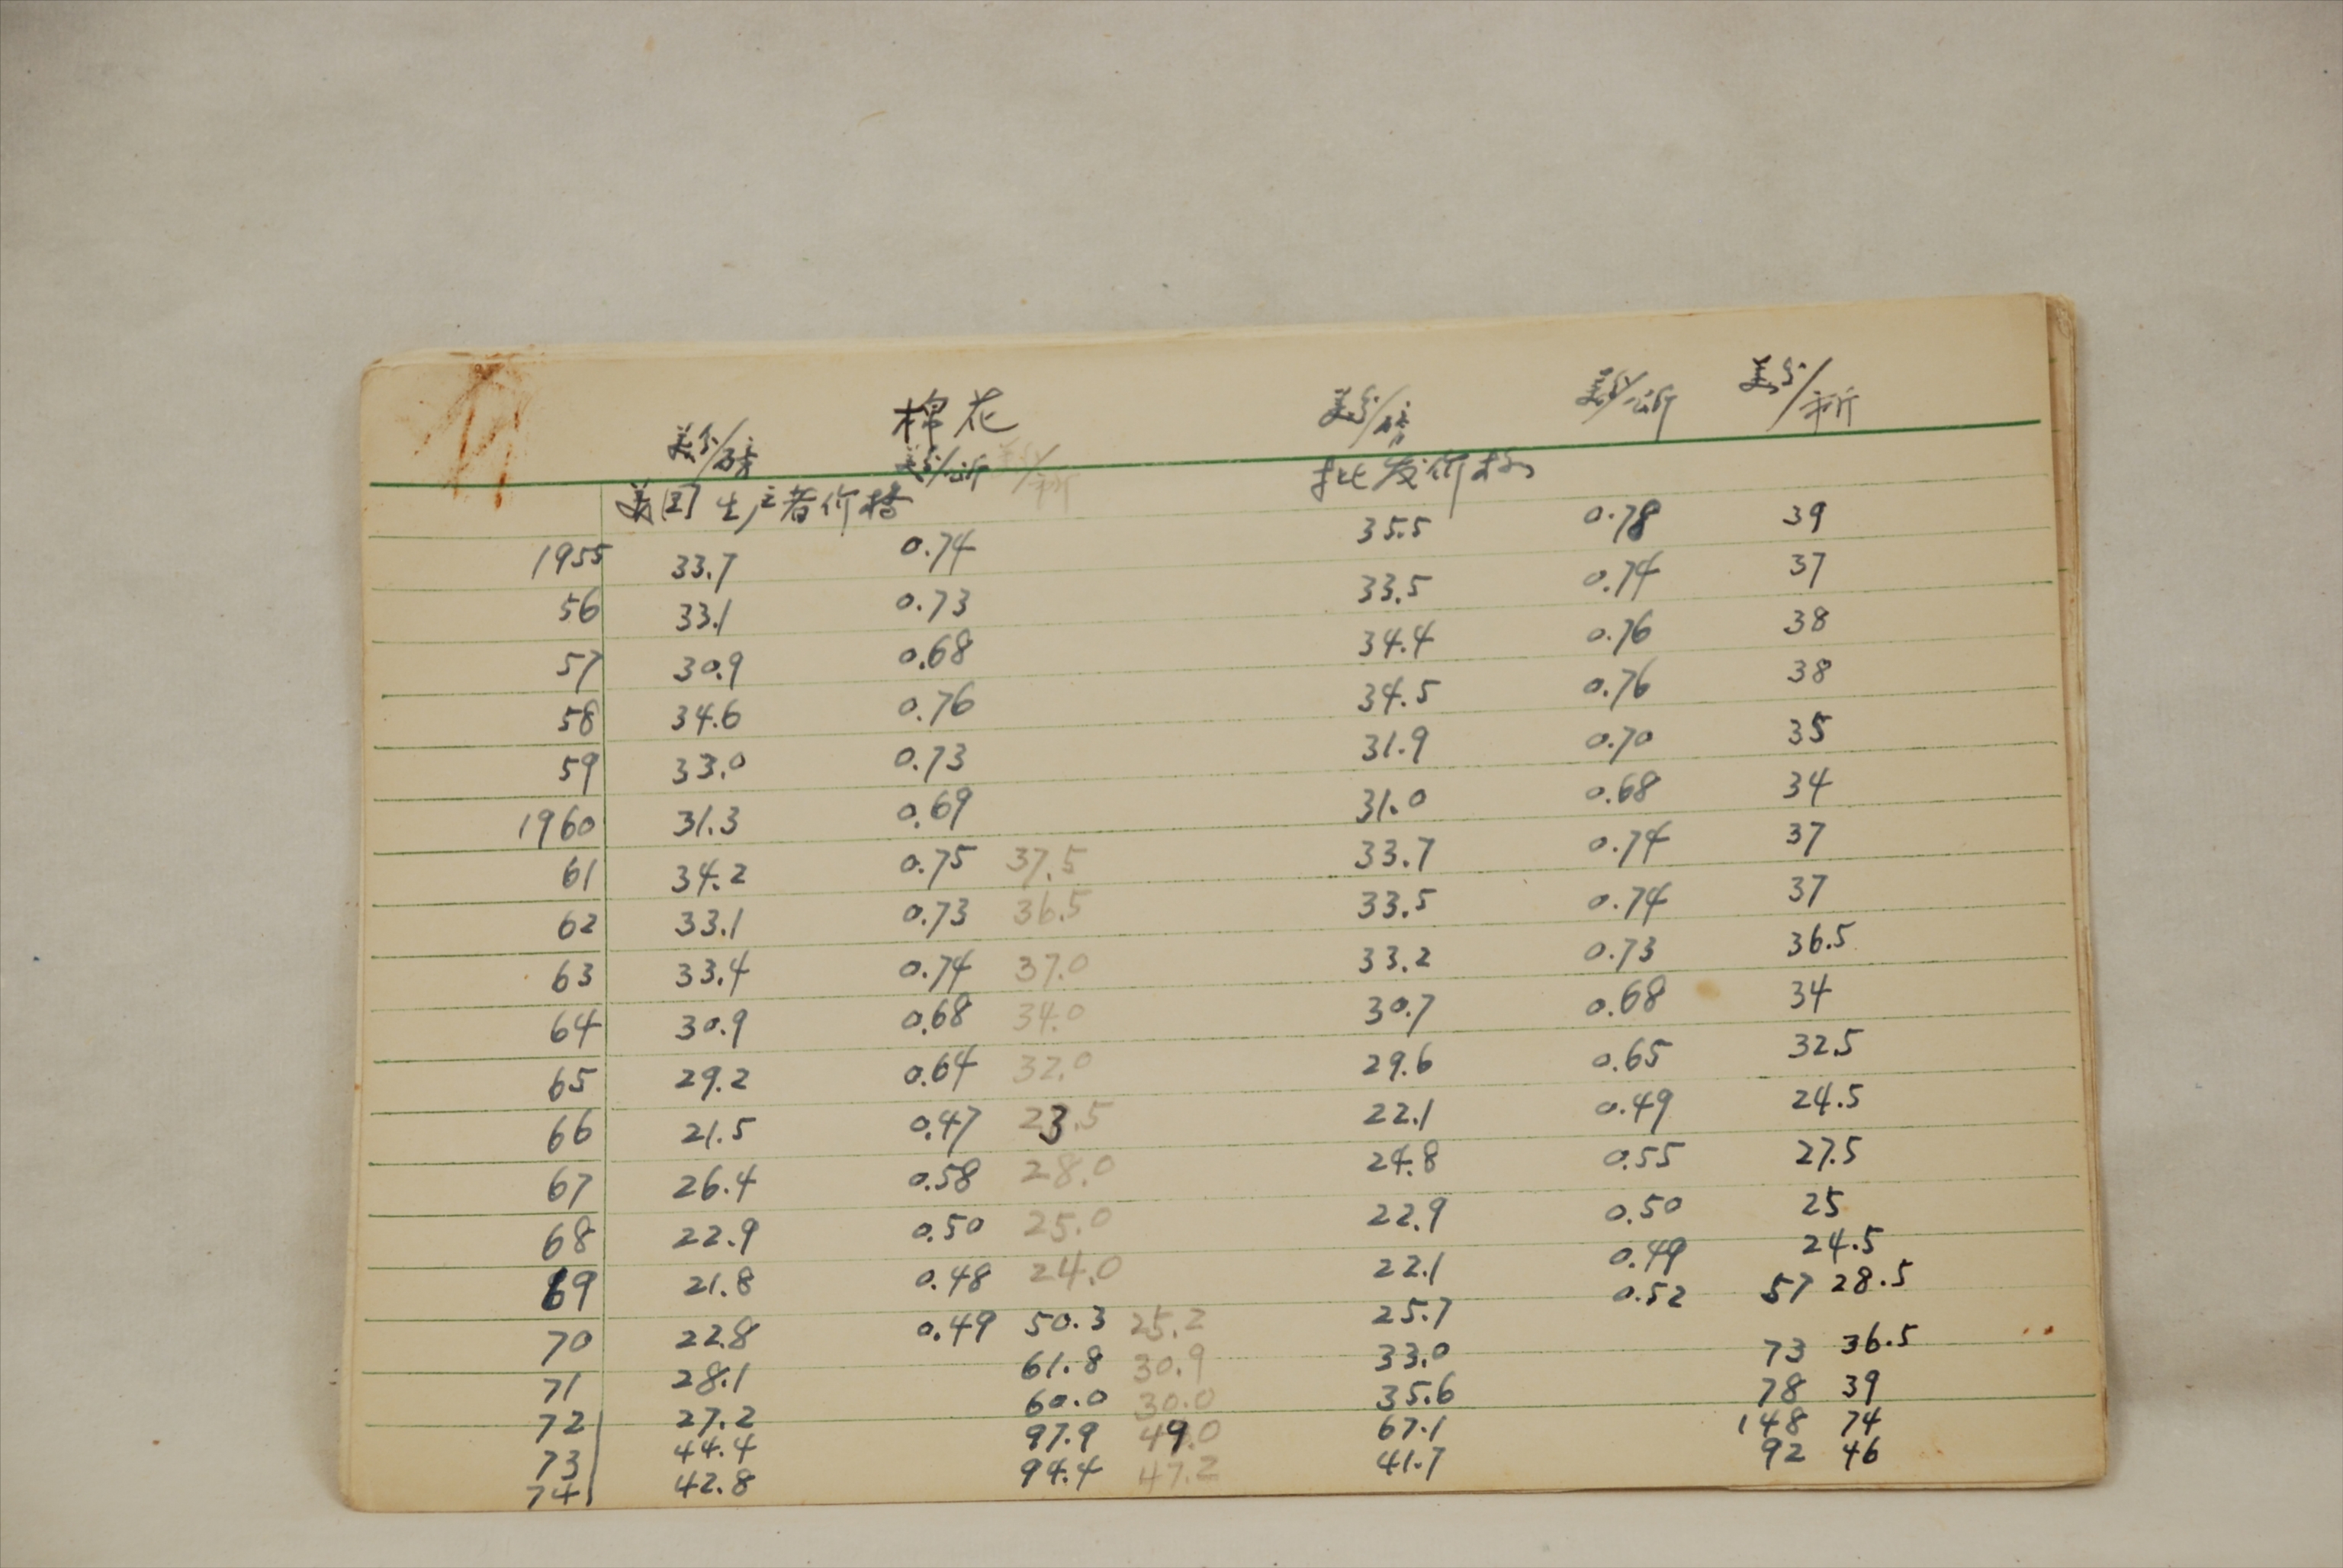 棉花
美分/磅 美分/公斤 美分/市斤 美分/磅 美分/公斤 美分/市斤
美国生产者价格 批发价格
1955 33.7 0.74 35.5 0.78 39
56 33.1 0.73 33.5 0.74 37
57 30.9 0.68 34.4 0.76 38
58 34.6 0.76 34.5 0.76 38
59 33.0 0.73 31.9 0.70 35
1960 31.3 0.69 31.0 0.68 34
61 34.2 0.75 37.5 33.7 0.74 37
62 33.1 0.73 36.5 33.5 0.74 37
63 33.4 0.74 37.0 33.2 0.73 36.5
64 30.9 0.68 34.0 30.7 0.68 34
65 29.2 0.64 32.0 29.6 0.65 32.5
66 21.5 0.47 23.5 22.1 0.49 24.5
67 26.4 0.58 28.0 24.8 0.55 27.5
68 22.9 0.50 25.0 22.9 0.50 25
69 21.8 0.48 24.0 22.1 0.49 24.5
70 22.8 0.49 50.3 25.2 25.7 0.52 57 28.5
71 28.1 61.8 30.9 33.0 73 36.5
72 27.2 60.0 30.0 35.6 78 39
73 44.4 97.9 49.0 67.1 148 74
74 42.8 94.4 47.2 41.7 92 46